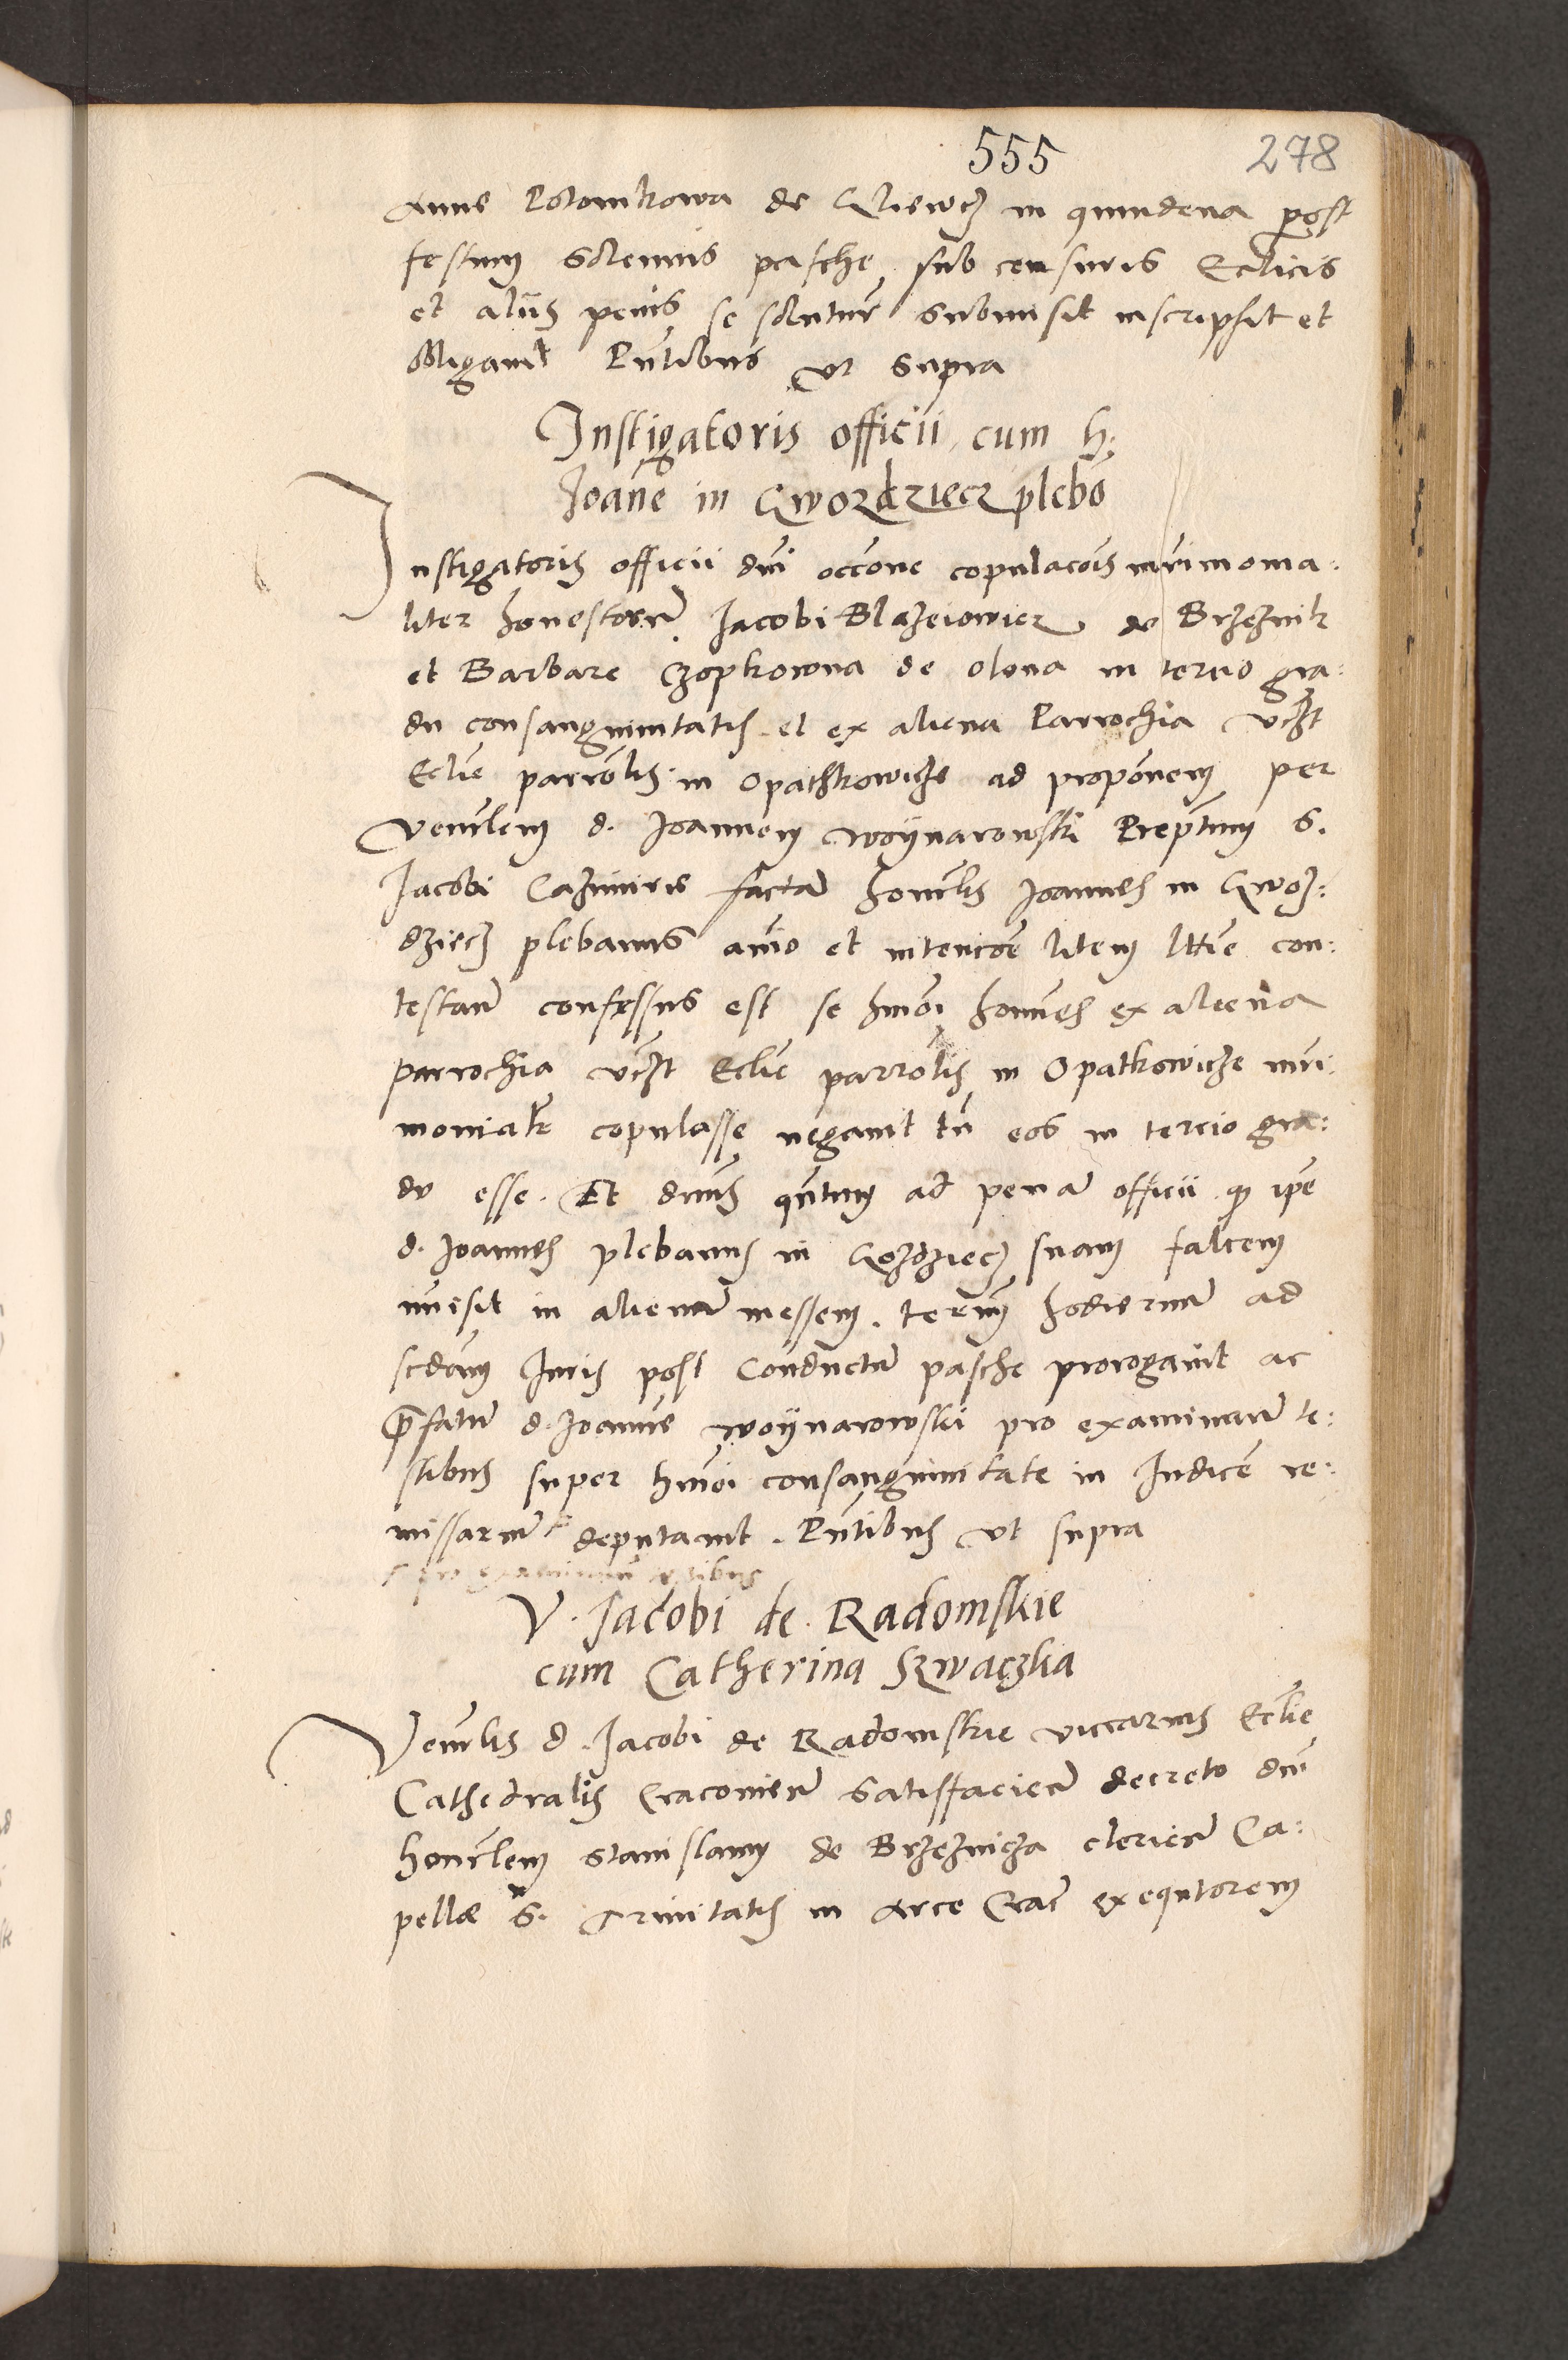 555 278
Anne Polomkowa de Gliewcz in quindena post
festum Solennis pasche sub censuris Eccliciis
et aliis penis se soluturũ submisit inscripsit et
obligauit Pñtibus vt supra
Instigatoris officii cum h:
Joañe in Gwozdziecz plebõ
Instigatoris officii dñi occõne copulacõis mrimonia:
liter honestorũ Jacobi Blazeiowicz de Brzeznik
et Barbare Czopkowna de olona in tercio gra:
du consanguinitatis et ex aliena Parrochia vcʒt
Ecclie parrõlis in Opathkowicze ad propõnem per
venerlem d. Joannem Woÿnarowski Prepõtum S.
Jacobi Cazimirie factã honorlis Joannes in Gwoz:
dziecz plebanus aĩo et intencõe litem lttie con:
testanẽ confessus est se hmõi homĩes ex aliena
parrochia vcʒt Ecclie parrõlis in Opatkowicze mri:
monialr̃ copulasse negauit tñ eos in tercio gra:
du esse. Et dnus qntum ad penã officii qꝫ ipẽ
d. Joannes plebanus in Gozdziecz suam falcem
misit in alienã messem. terĩm hodiernũ ad
scdam Iuris post Conductũ pasche prorogauit ac
p̃fatũ d. Joanne Woÿnarowski pro examinanẽ te:
stibus super hmõi consanguinitate in Iudicẽ re:
missariũ deputauit. Pñtibus vt supra
V. Jacobi de Radomskie
cum Catherina Szwaczka
Venerlis d. Jacobi de Radomskie viccarius Ecclie
Cathedralis Cracouien̄ Satisfacien̄ decreto dni
honorlem Stanislaum de Brzeznicza clericũ Ca:
pellæ S. Trinitatis in Arce Crac̄ exequtorem